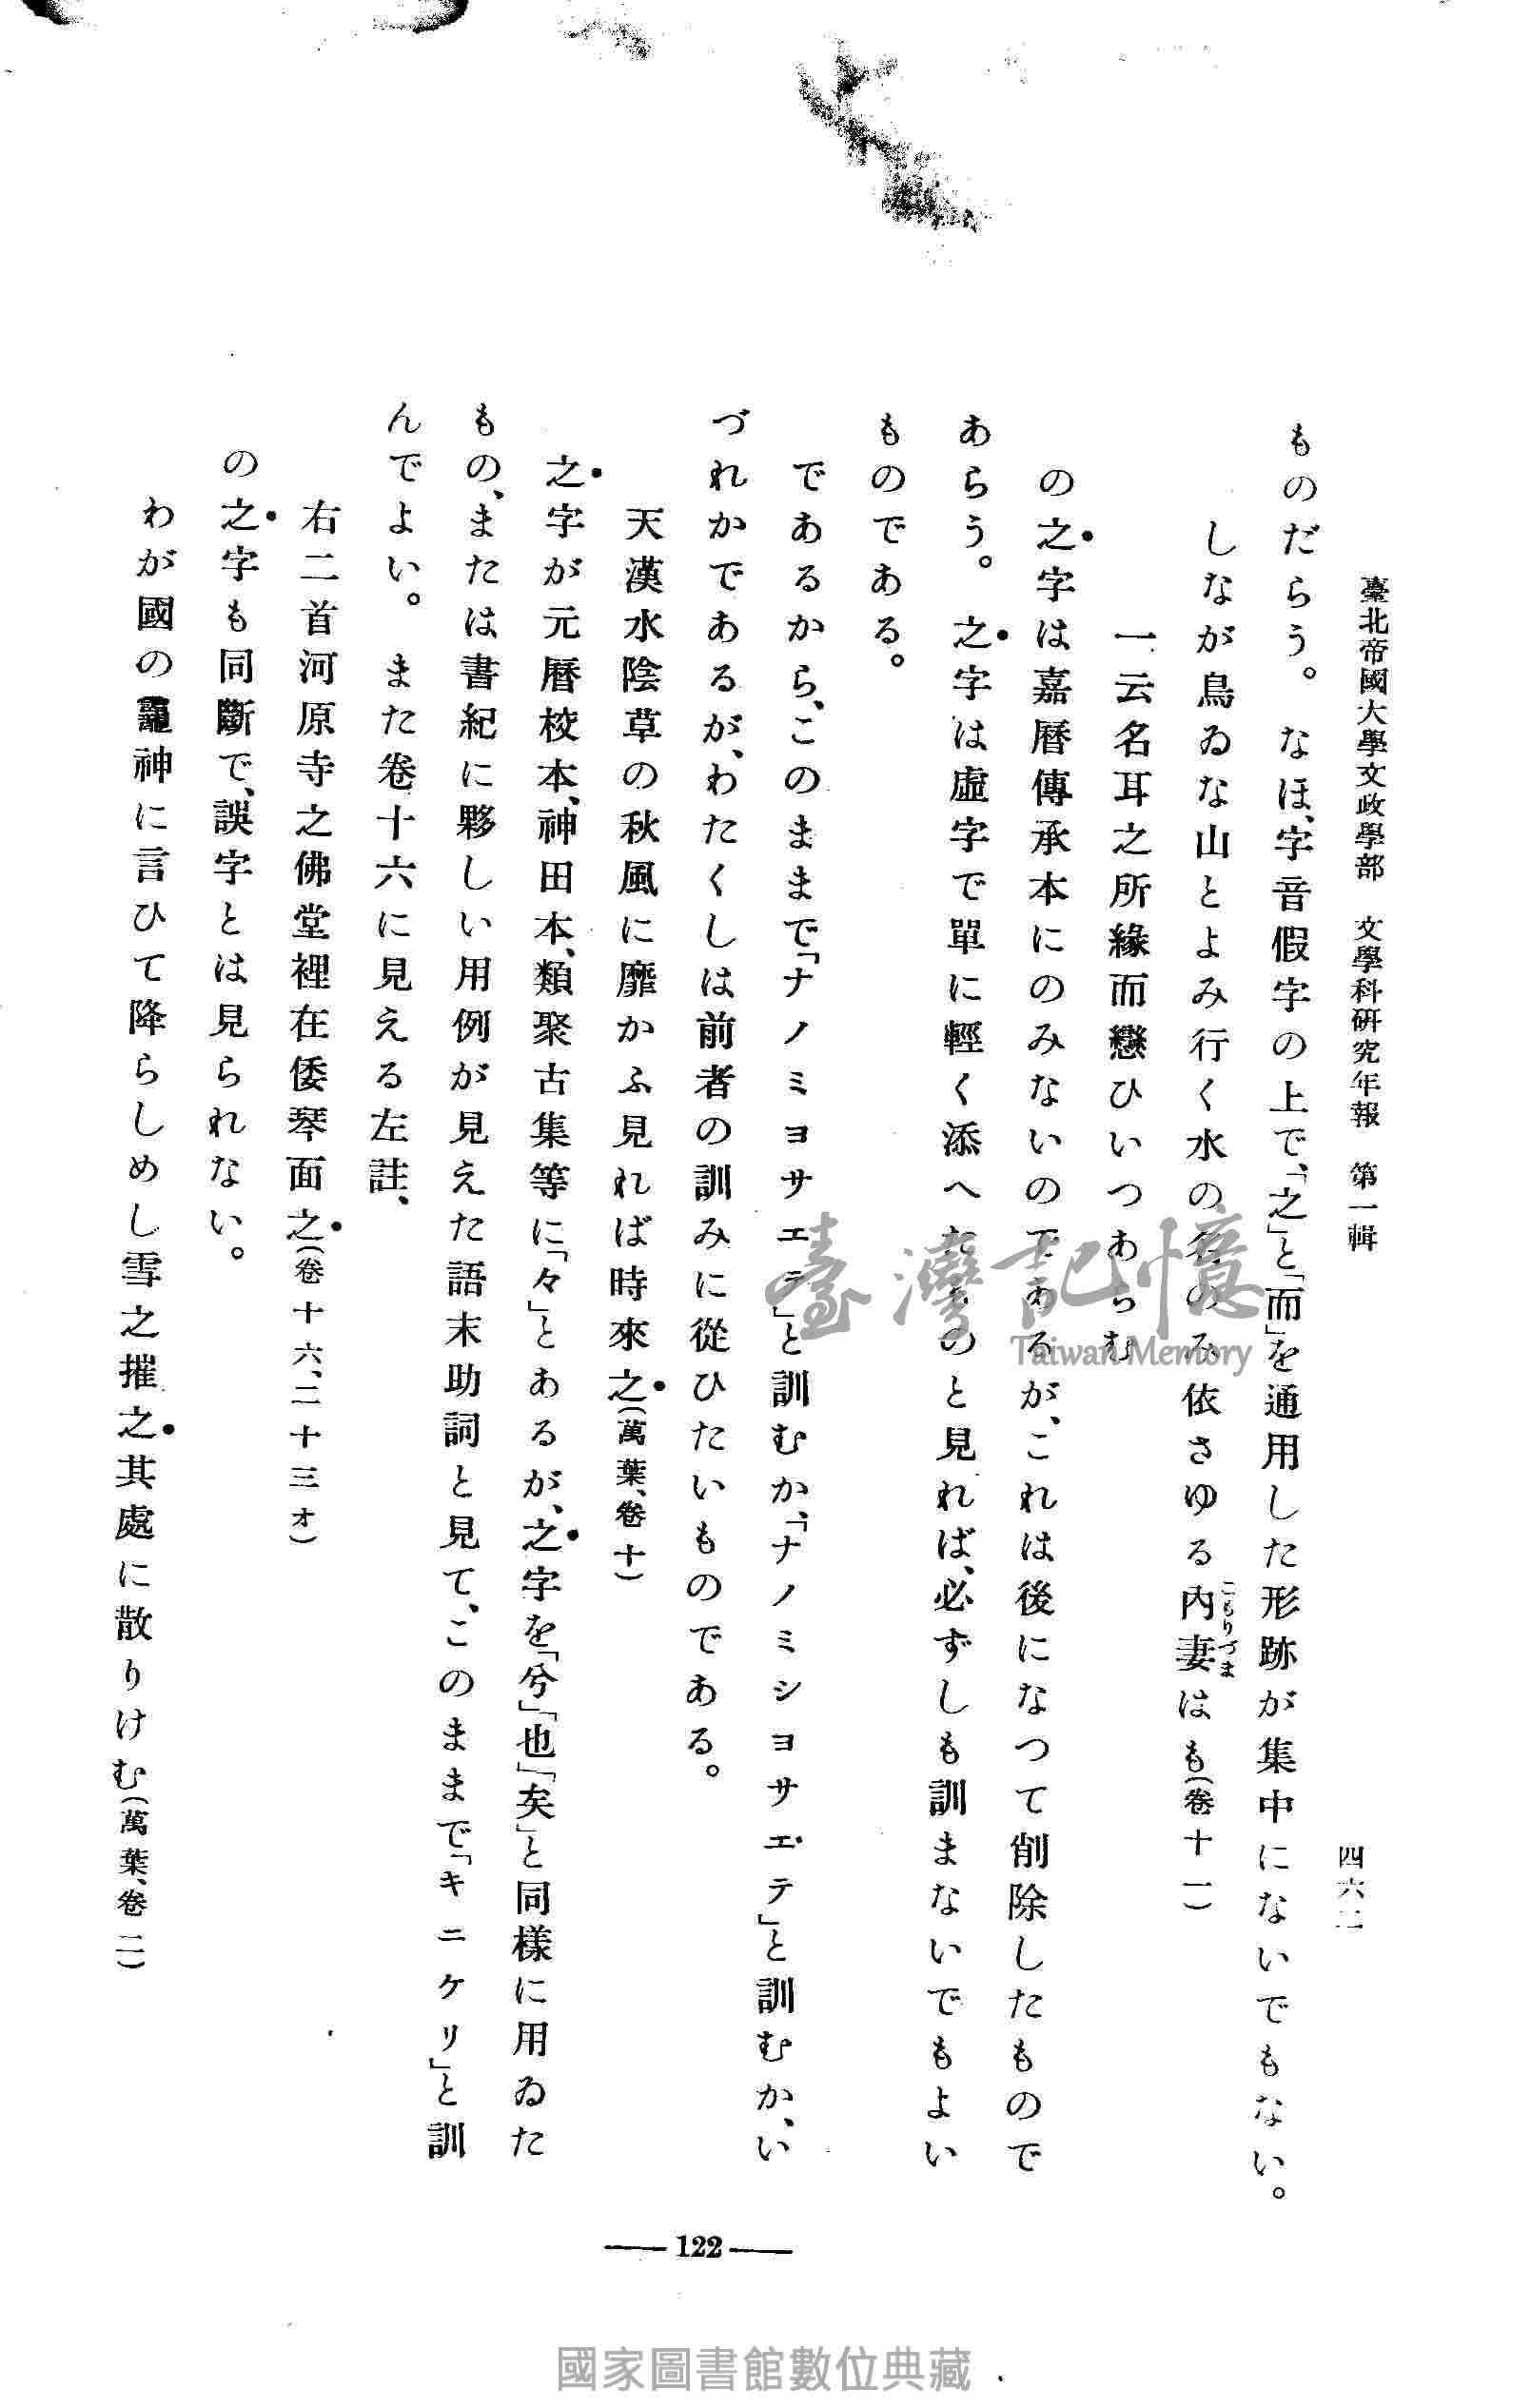 臺北帝國大學文政學部　文學科研究年報　第一輯
四六二
ものだらう。なほ、字音假字の上で、「之」と「而」を通用した形跡が集中にないでもない。
しなが鳥ゐな山とよみ行く水の名のみ依さゆる内妻はも(卷十一)
こもりづま
一云名耳之所緣而戀ひいつあらむ
の之字は嘉曆傳承本にのみないのであるが、これは後になつて削除したもので
あらう。之字は虛字で單に輕く添へたものと見れば、必ずしも訓まないでもよい
ものである。
であるから、このままで「ナノミヨサエテ」と訓むか、「ナノミシヨサエテ」と訓むか、い
づれかであるが、わたくしは前者の訓みに從ひたいものである。
天漢水陰草の秋風に靡かふ見れば時來之(萬葉、卷十)
之字が元曆校本、神田本、類聚古集等に「々」とあるが、之字を「兮」「也」「矣」と同樣に用ゐた
もの、または書紀に夥しい用例が見えた語末助詞と見て、このままで「キニケリ」と訓
んでよい。また卷十六に見える左註、
右二首河原寺之佛堂裡在倭琴面之(卷十六、二十三オ)
の之字も同斷で、誤字とは見られない。
わが國の龗神に言ひて降らしめし雪之摧之其處に散りけむ(萬葉、卷二)
122
臺灣記憶
Taiwan Memory
國家圖書館數位典藏